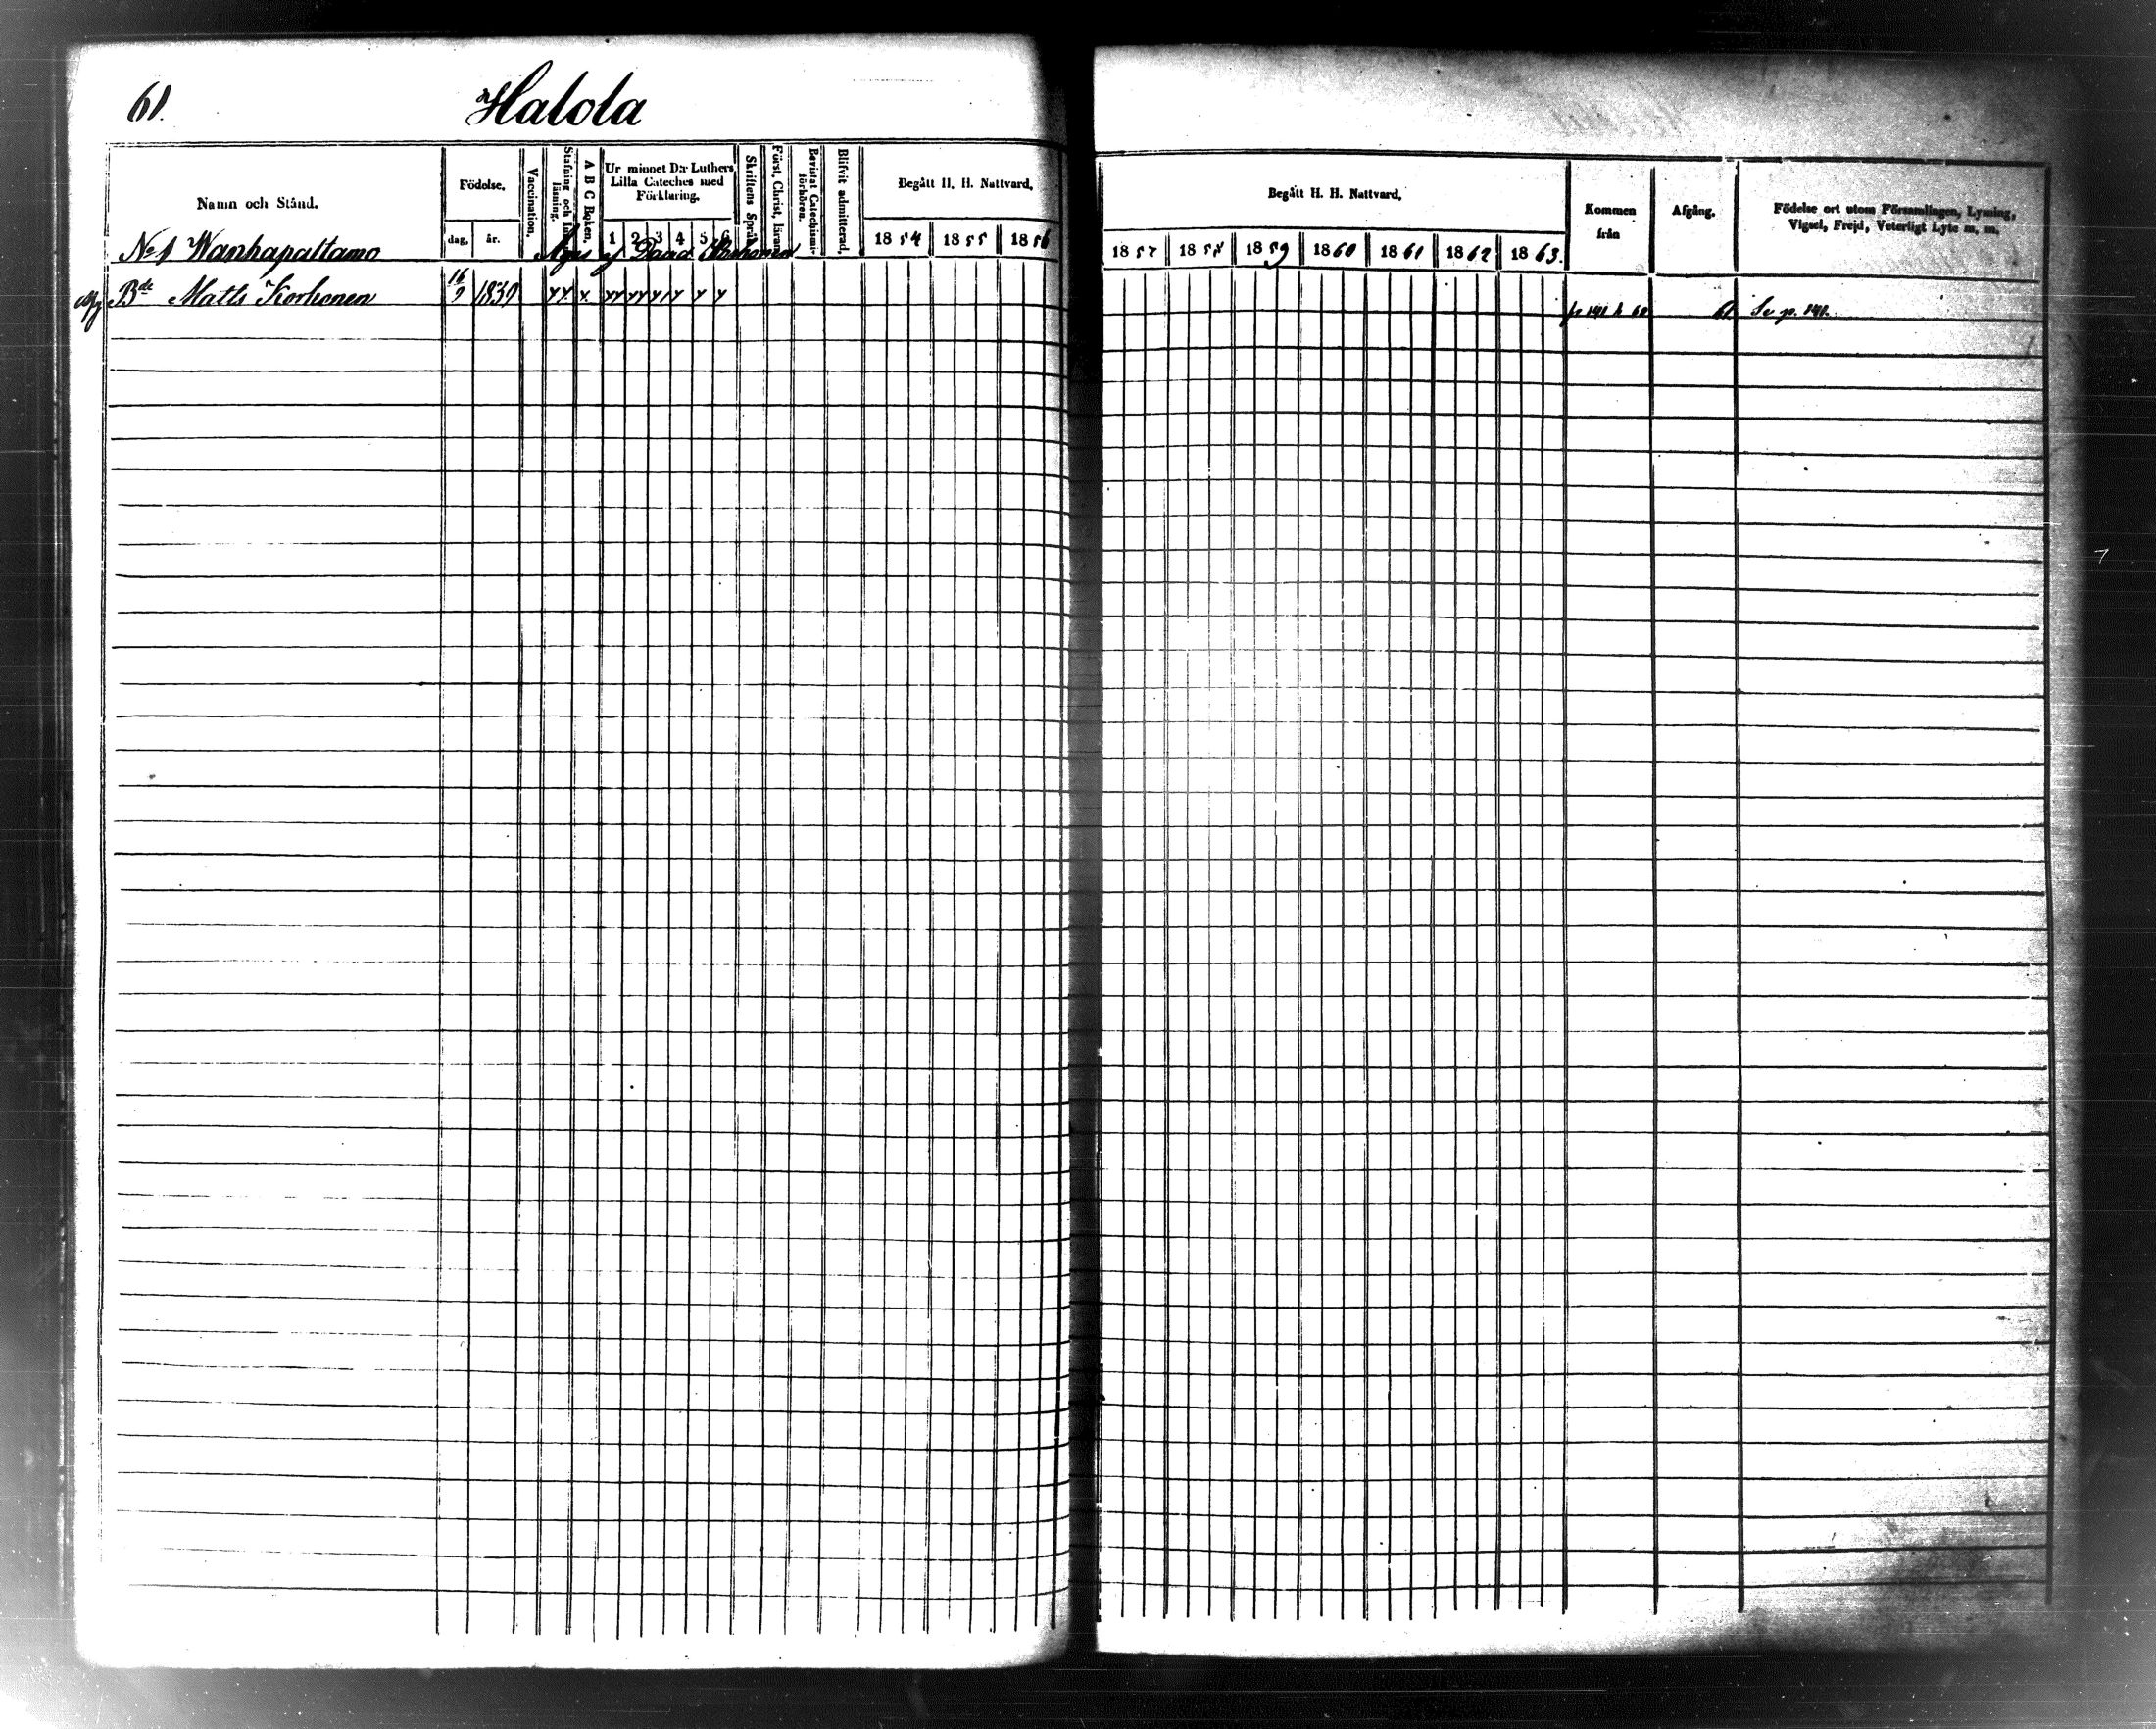 61.
Halola
Namn och Stånd.
Födelse.
dag, år.
Vaccination.
Stafning och
läsning.
A B C Boken.
Ur minnet D:r Luthers
Lilla Cateches med
Förklaring.
1 2 3 4 5 6
Skriftens Språk
Först. Christ. läran
Bevistat Catechismi-
förhören.
Blifvit admitterad.
Begått H. H. Nattvard.
1854 1855 1856
Begått H. H. Nattvard.
1857 1858 1859 1860 1861 1862 1863.
Kommen
från
Afgång.
Födelse ort utom Församlingen, Lysning,
Vigsel, Frejd, Veterligt Lyte m. m.
No 1 Wanhapaltamo
Äges af David Korhonen
Bde Matts Korhonen 16/9 1839 61 Se p. 141.